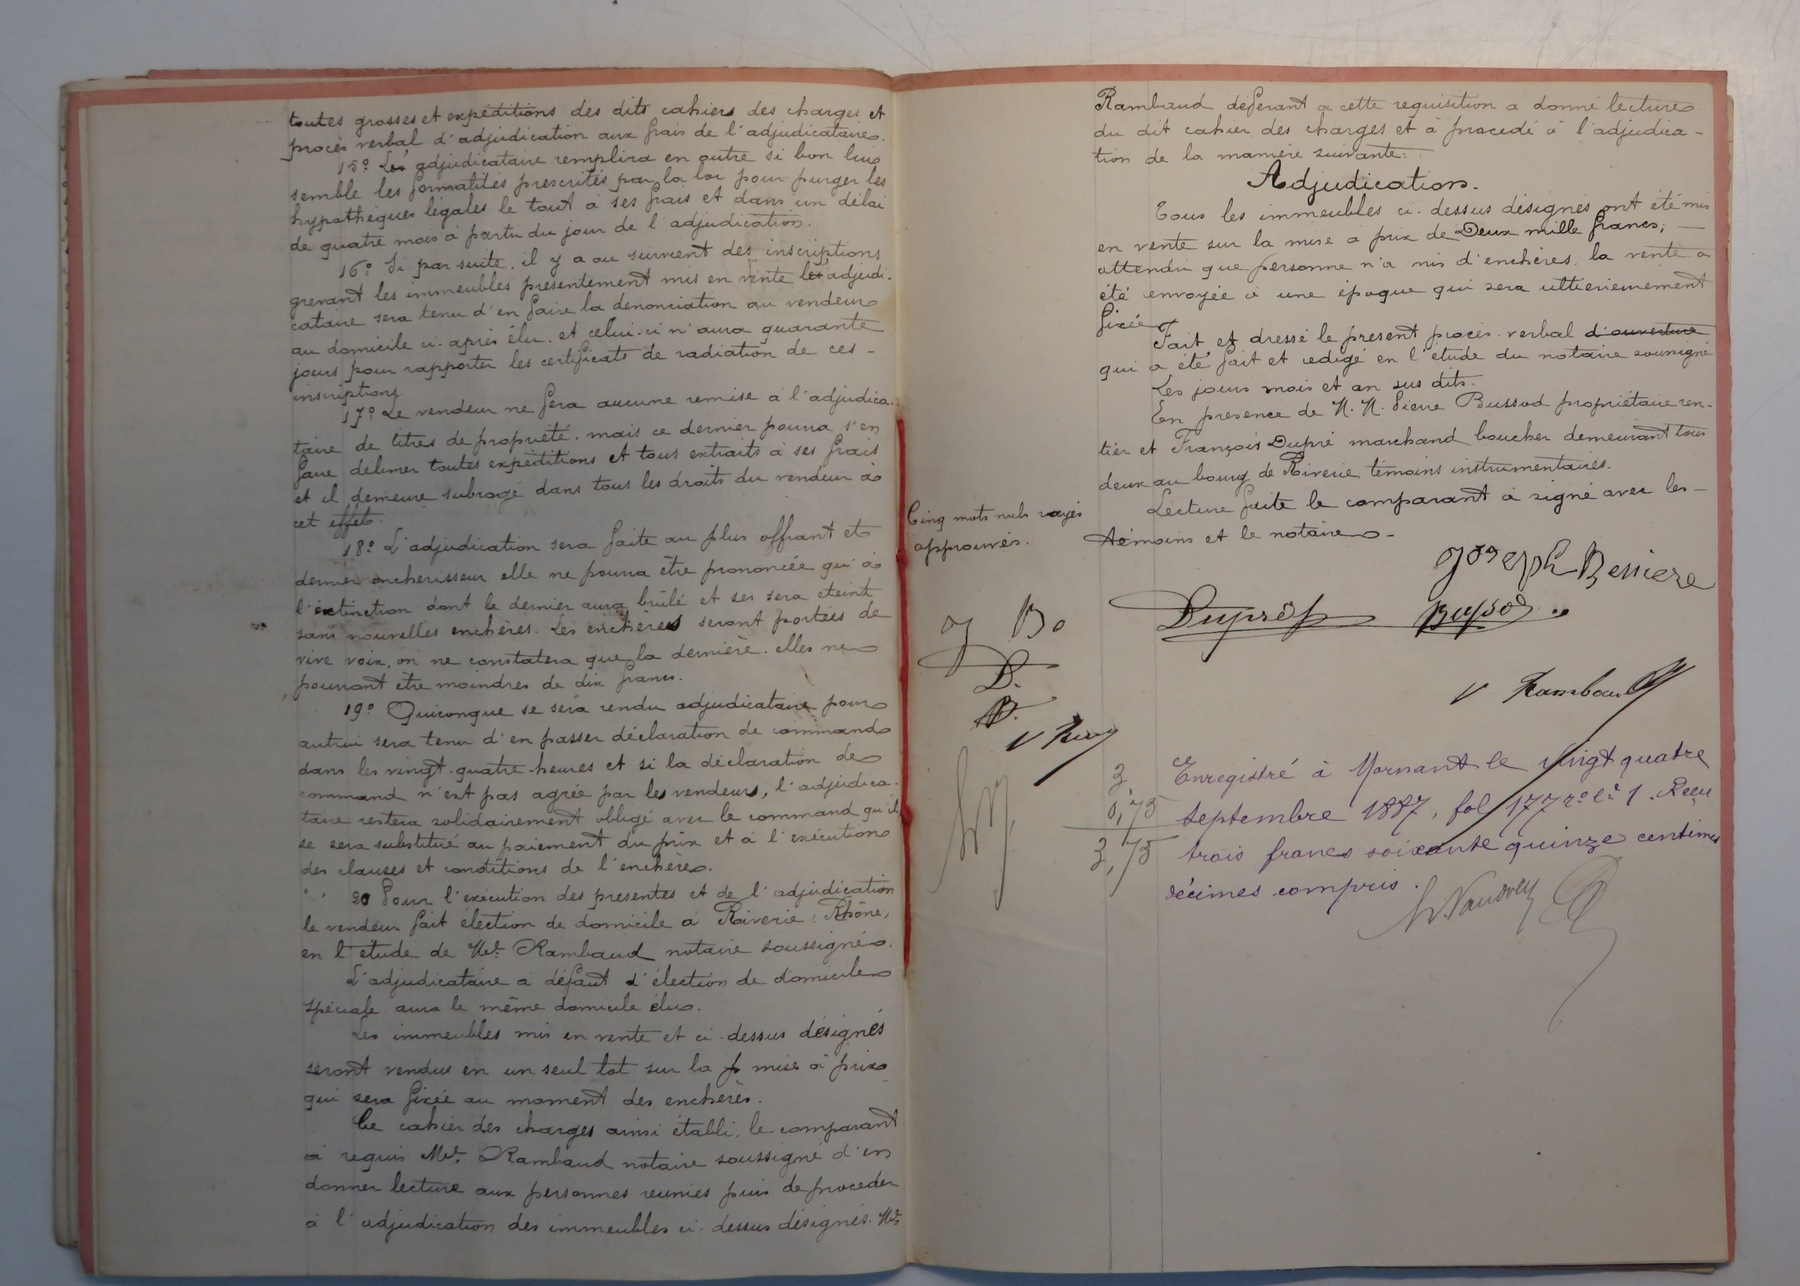 toutes grosses et expéditions des dits cahiers des charges et
procès verbal d'adjudication aux frais de l'adjudicataire.
15º Les adjudicataire remplira en outre si bon lui
semble les formalités prescrites par la loi pour purger les
hypothèques légales le tout à ses frais et dans un délai
de quatre mois à partir du jour de l'adjudication.
16º Si par suite, il y a ou survient des inscriptions
grevant les immeubles présentement mis en vente let adjudi-
cataire sera tenu d'en faire la dénonciation au vendeur
au domicile ci-après élu, et celui-ci n'aura quarante
jours pour rapporter les certificats de radiation de ces-
inscriptions.
17º Le vendeur ne fera aucune remise à l'adjudica-
taire de titres de propriété, mais ce dernier pourra s'en
faire délivrer toutes expéditions et tous extraits à ses frais
et il demeure subrogé dans tous les droits du vendeur à
cet effet.
18º L'adjudication sera faite au plus offrant et
dernier enchérisseur elle ne pourra être prononcée qu'à
l'extinction dont le dernier aura brûlé et ser sera éteint
sans nouvelles enchères. Les enchères seront portées de
vive voix, on ne constatera que la dernière. elles ne
pourront être moindres de dix francs.
19º Quiconque se sera rendu adjudicataire pour
autrui sera tenu d'en passer déclaration de command
dans les vingt-quatre-heures et si la déclaration de
command n'est pas agréé par les vendeurs, l'adjudica-
taire restera solidairement obligé avec le command qu'il
se sera substitué au paiement du prix et à l'exécution
des clauses et conditions de l'enchère.
20 Pour l'exécution des presentes et de l'adjudication
le vendeur fait élection de domicile à Riverie (Rhône,
en l'étude de Me Rambaud notaire soussigné.
L'adjudicataire à défaut d'élection de domicile
spéciale aura le même domicile élu.
Les immeubles mis en vente et ci-dessus désignés
seront vendus en un seul lot sur la p mise à prix
qui sera fixée au moment des enchères.
Ce cahier des charges ainsi établi, le comparant
a requis Me Rambaud notaire soussigné d'en
donner lecture aux personnes reunies puis de procéder
à l'adjudication des immeubles ci-dessus désignés. Me
Rambaud déferant a cette requisition a donné lecture
du dit cahier des charges et à procédé à l'adjudica-
tion de la manière suivante:
Adjudication.
Tous les immeubles ci-dessus désignés ont été mis
en vente sur la mise à prix de Deux mille francs,
attendu que personne n'a mis d'enchères, la vente a
été envoyée à une époque qui sera ultierieurement
fixée
Fait et dressé le present procès-verbal d'ouverture
qui a été fait et redigé en l'étude du notaire soussigné
Les jours mois et an sus dits.
En presence de M. M. Pierre Bussod propriétaire ren-
tier et François Dupré marchand boucher demeurant tous
deux au bourg de Riverie témoins instrumentaires.
Lecture faite le comparant à signé avec les-
témoins et le notaire.-
Cinq mots nuls rayés
approuvés.
Joseph Bessiere
Duprêf Bussod
J Be
D.
B.
V Ramb
V Rambaud
Enregistré à Mornant le vingt quatre
septembre 1887, fol 177 rº Cº 1. Reçu
trois francs soixante quinze centimes
décimes compris.
3
0,75
3,75